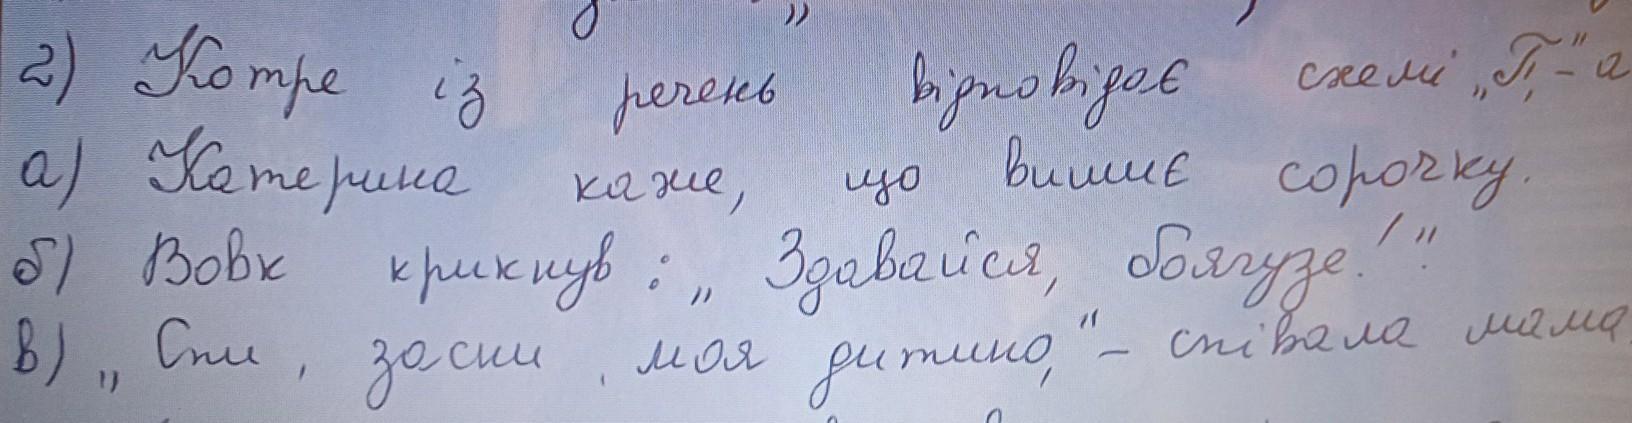 2) Котре із речень відповідає схемі „П,“ - а
а) Катерина каже, що вишиє сорочку.
б) Вовк крикнув: „Здавайся, боягузе!“
в) „Спи, засни, моя дитино,“ - співала мама.